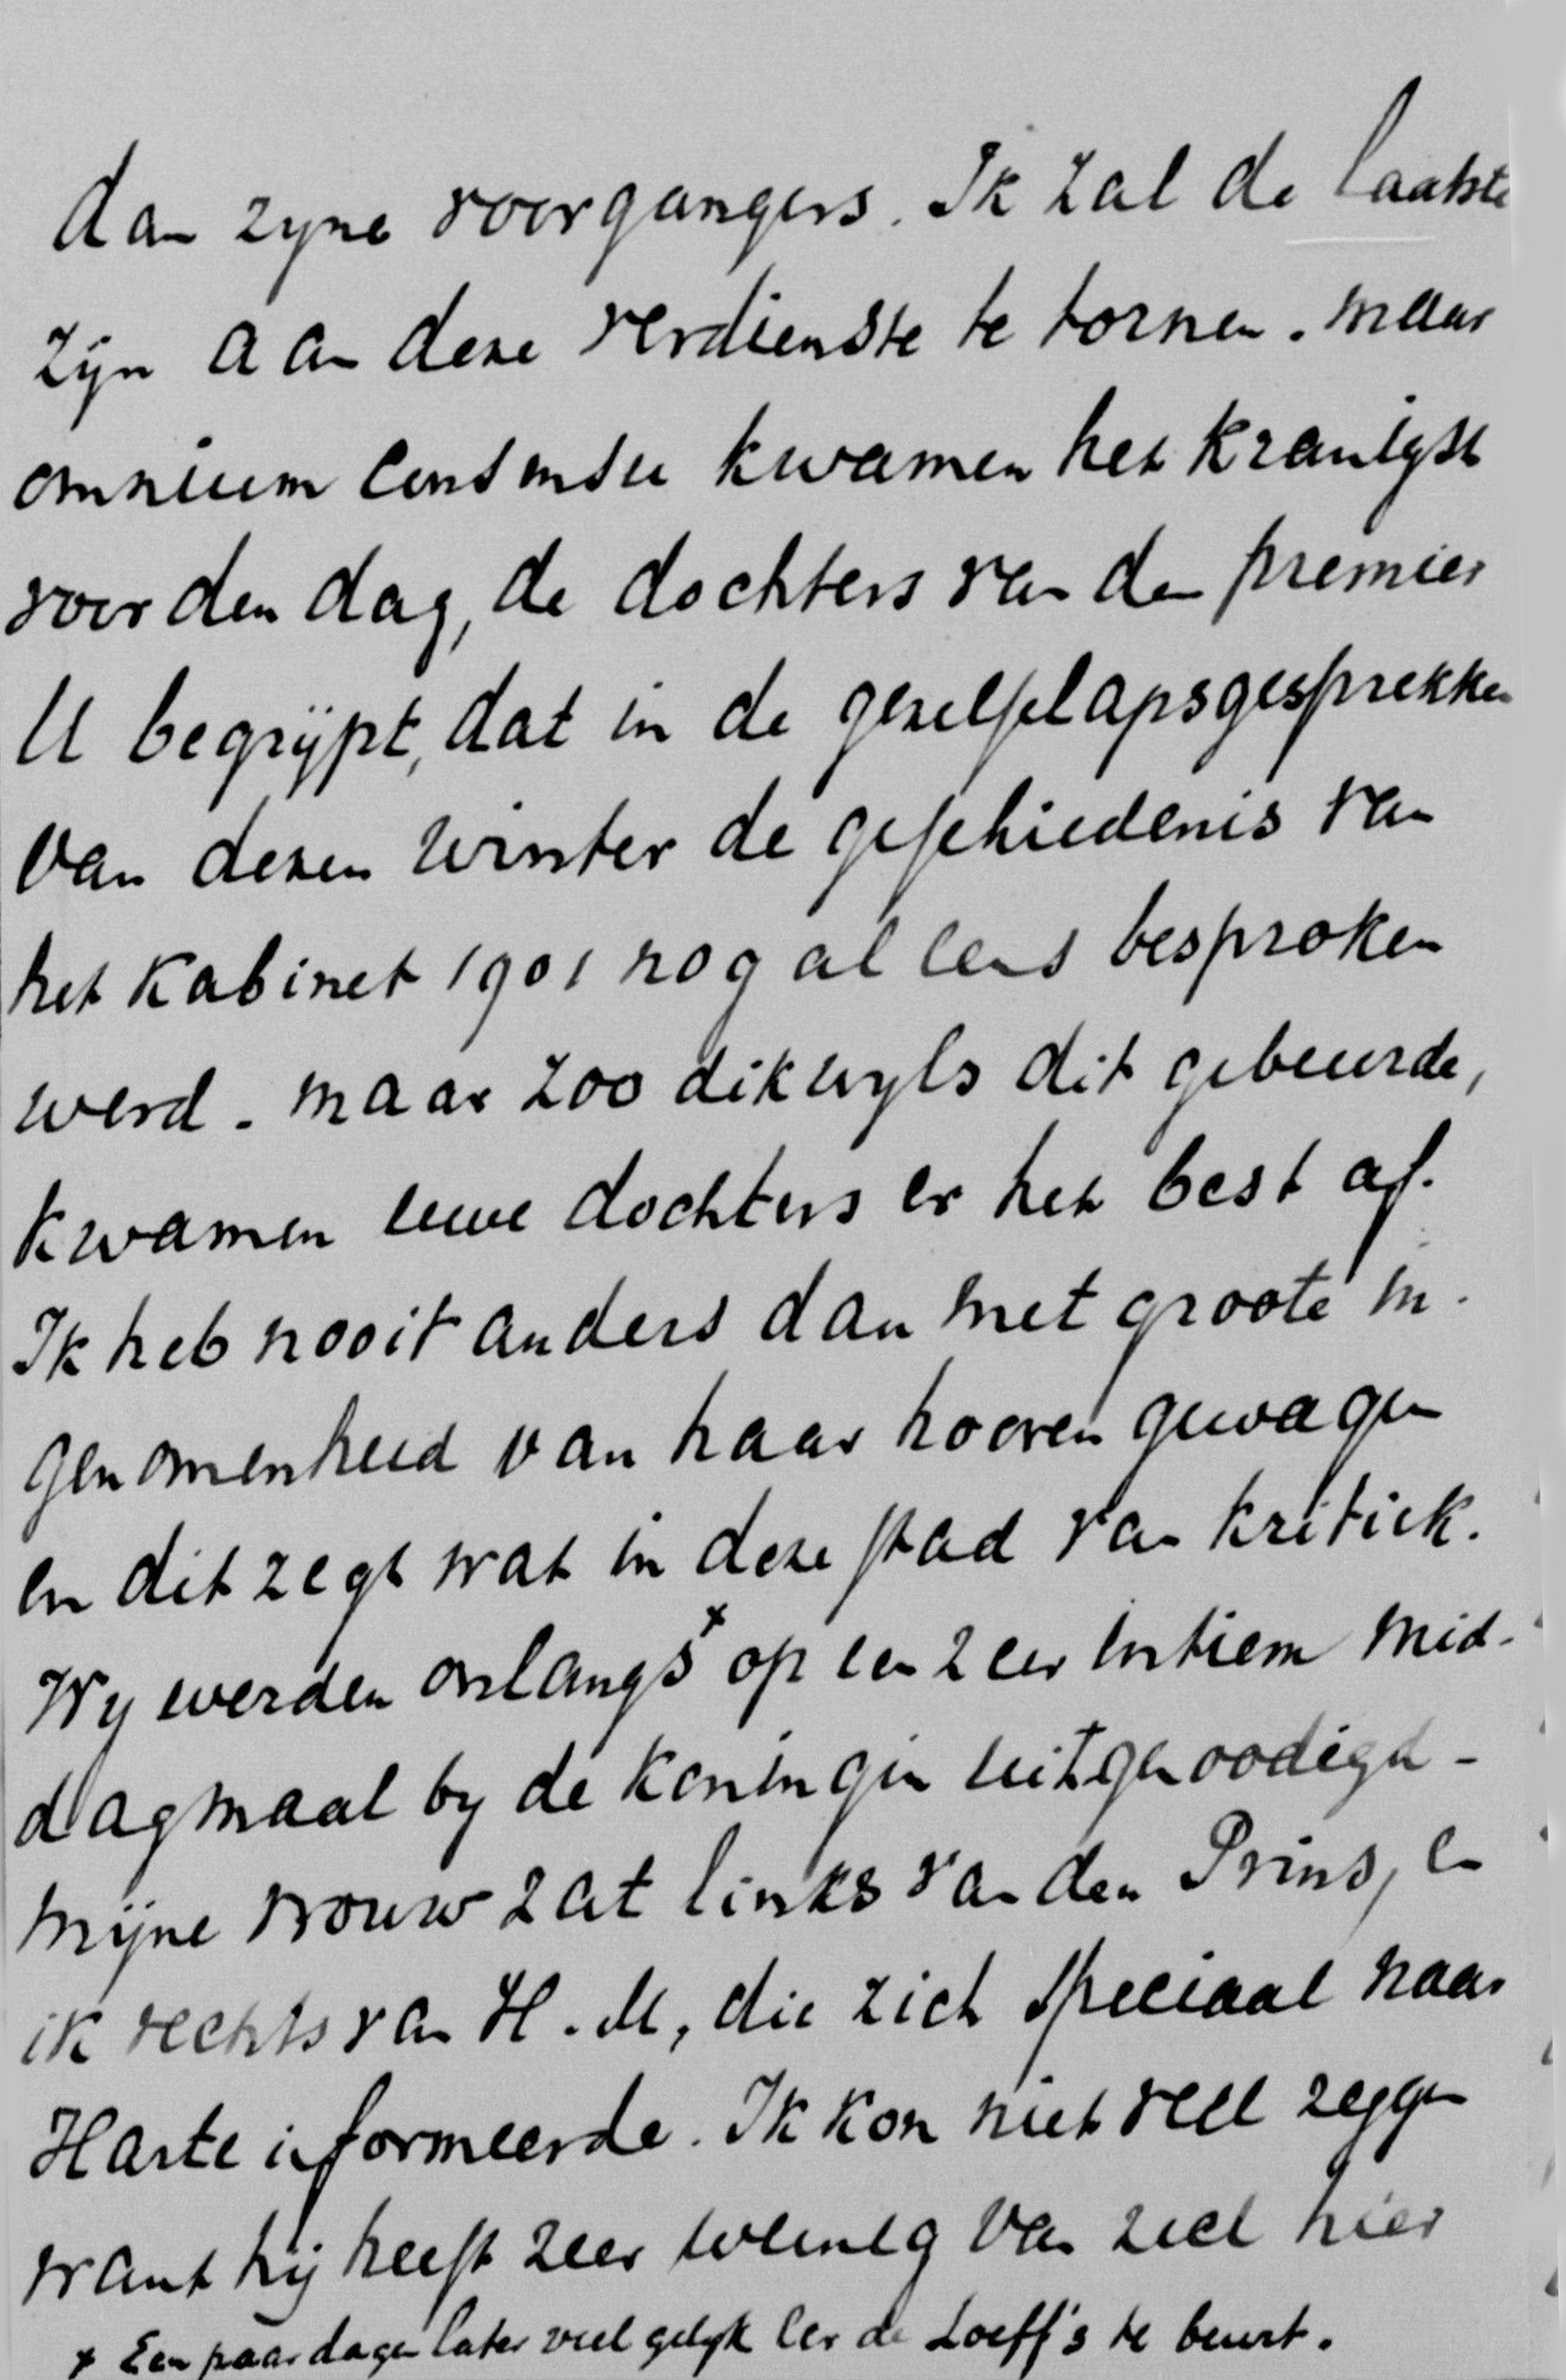 dan zyne voorgangers. Ik zal de laatste
zijn aan deze verdienste te tornen. maar
omnium consensu kwamen het kranigst
voor den dag, de dochters van den premier
U begrijpt, dat in de gezelschapsgesprekken
van dezen winter de geschiedenis van
het Kabinet 1901 nog al eens besproken
werd. maar zoo dikwyls dit gebeurde,
kwamen uwe dochters er het best af.
Ik heb nooit anders dan met groote in-
genomenheid van haar hooren gewagen
en dit zegt wat in deze stad van kritiek.
Wy werden onlangs x op een zeer intiem mid-
dagmaal by de Koningin uitgenoodigd -
mijne vrouw zat links van den Prins, en
ik rechts van H. M, die zich speciaal naar
Harte informeerde. Ik kon niet veel zeggen
want hij heeft zeer weinig van zich hier
x Een paar dagen later viel gelijk eer de Loeff's te beurt.